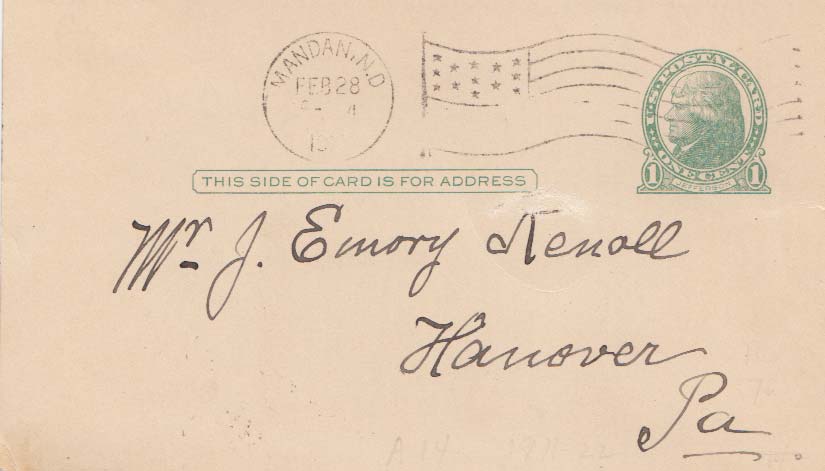 MANDAN, N.D.
FEB 28
4
U.S. POSTAL CARD
ONE CENT
1 JEFFERSON 1
THIS SIDE OF CARD IS FOR ADDRESS
Mr. J. Emory
Hanover
Pa
A 14